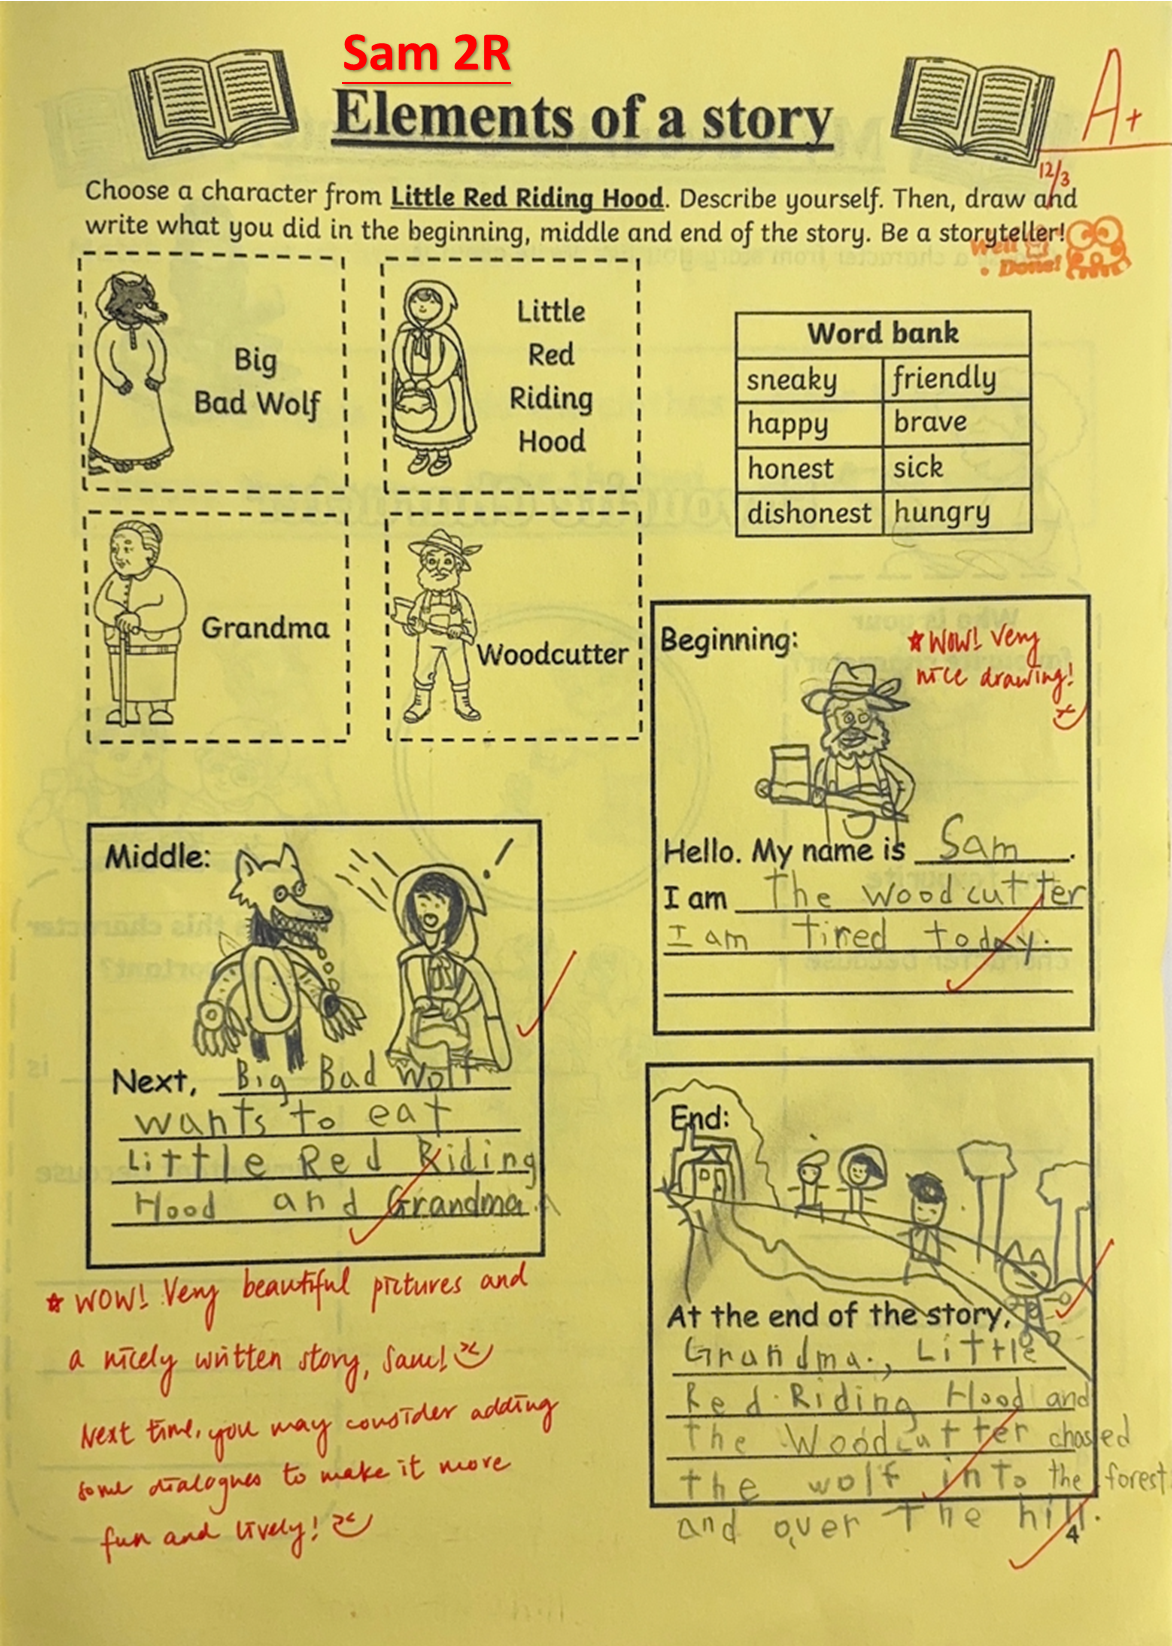 Sam 2R
Elements of a story
A+
12/3
Choose a character from Little Red Riding Hood. Describe yourself. Then, draw and
write what you did in the beginning, middle and end of the story. Be a storyteller!
Well
Done!
Big
Bad Wolf
Little
Red
Riding
Hood
Grandma
Woodcutter
Word bank
sneaky friendly
happy brave
honest sick
dishonest hungry
Beginning:
WOW! Very
nice drawing!
Hello. My name is Sam.
I am The woodcutter
I am tired today.
Middle:
Next, Big Bad Wolf
wants to eat
Little Red Riding
Hood and Grandma.
WOW! Very beautiful pictures and
a nicely written story, Sam!
Next time, you may consider adding
some dialogues to make it more
fun and lively!
End:
At the end of the story,
Grandma., Little
Red Riding Hood and
the Woodcutter chased
the wolf into the forest
and over The hill.
4